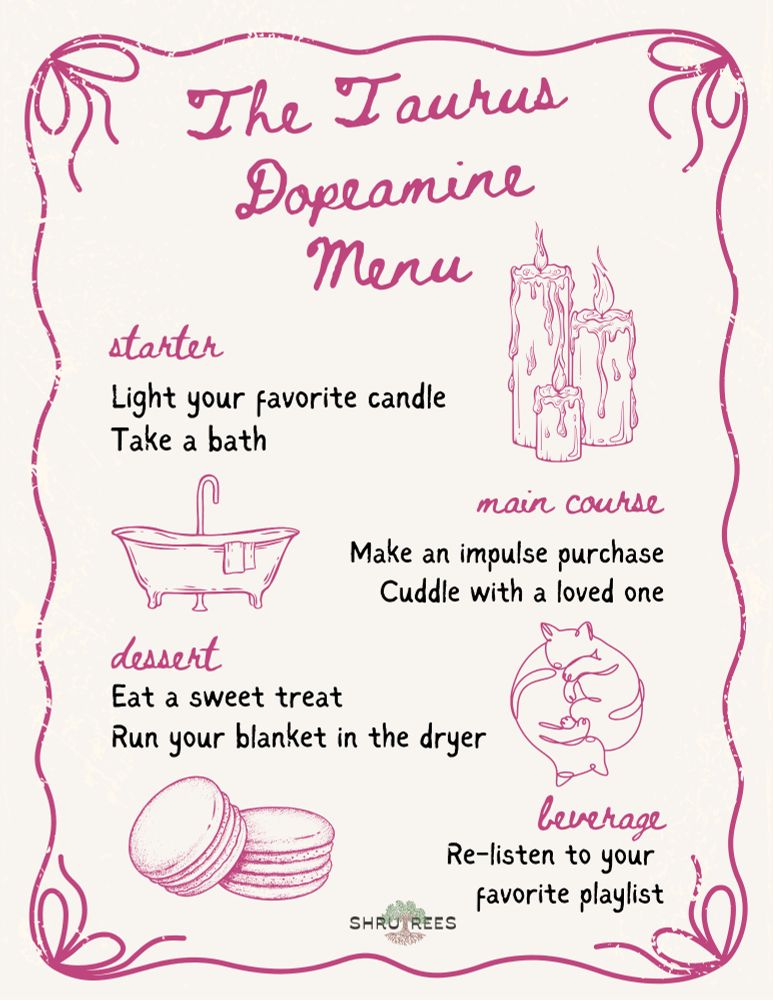 The Taurus
Dopeamine
Menu
starter
Light your favorite candle
Take a bath
main course
Make an impulse purchase
Cuddle with a loved one
dessert
Eat a sweet treat
Run your blanket in the dryer
beverage
Re-listen to your
favorite playlist
SHRUTREES